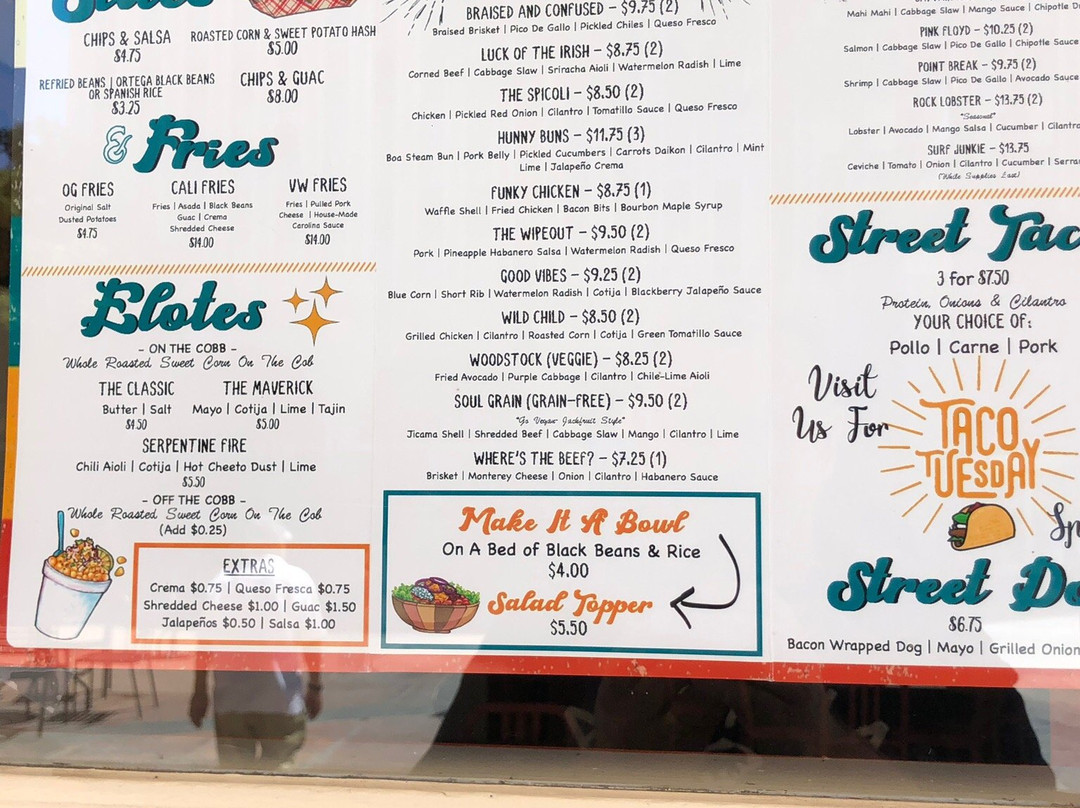 CHIPS & SALSA
$4.75
ROASTED CORN & SWEET POTATO HASH
$5.00
REFRIED BEANS | ORTEGA BLACK BEANS
OR SPANISH RICE
$3.25
CHIPS & GUAC
$8.00
& Fries
OG FRIES
Original Salt
Dusted Potatoes
$4.75
CALI FRIES
Fries | Asada | Black Beans
Guac | Crema
Shredded Cheese
$14.00
VW FRIES
Fries | Pulled Pork
Cheese | House-Made
Carolina Sauce
$14.00
Elotes
- ON THE COBB -
Whole Roasted Sweet Corn On The Cob
THE CLASSIC
Butter | Salt
$4.50
THE MAVERICK
Mayo | Cotija | Lime | Tajin
$5.00
SERPENTINE FIRE
Chili Aioli | Cotija | Hot Cheeto Dust | Lime
$5.50
- OFF THE COBB -
Whole Roasted Sweet Corn On The Cob
(Add $0.25)
EXTRAS
Crema $0.75 | Queso Fresca $0.75
Shredded Cheese $1.00 | Guac $1.50
Jalapeños $0.50 | Salsa $1.00
BRAISED AND CONFUSED – $9.75 (2)
Braised Brisket | Pico De Gallo | Pickled Chiles | Queso Fresco
LUCK OF THE IRISH – $8.75 (2)
Corned Beef | Cabbage Slaw | Sriracha Aioli | Watermelon Radish | Lime
THE SPICOLI – $8.50 (2)
Chicken | Pickled Red Onion | Cilantro | Tomatillo Sauce | Queso Fresco
HUNNY BUNS – $11.75 (3)
Boa Steam Bun | Pork Belly | Pickled Cucumbers | Carrots Daikon | Cilantro | Mint
Lime | Jalapeño Crema
FUNKY CHICKEN – $8.75 (1)
Waffle Shell | Fried Chicken | Bacon Bits | Bourbon Maple Syrup
THE WIPEOUT – $9.50 (2)
Pork | Pineapple Habanero Salsa | Watermelon Radish | Queso Fresco
GOOD VIBES – $9.25 (2)
Blue Corn | Short Rib | Watermelon Radish | Cotija | Blackberry Jalapeño Sauce
WILD CHILD – $8.50 (2)
Grilled Chicken | Cilantro | Roasted Corn | Cotija | Green Tomatillo Sauce
WOODSTOCK (VEGGIE) – $8.25 (2)
Fried Avocado | Purple Cabbage | Cilantro | Chile-Lime Aioli
SOUL GRAIN (GRAIN-FREE) – $9.50 (2)
"Go Vegan Jackfruit Style"
Jicama Shell | Shredded Beef | Cabbage Slaw | Mango | Cilantro | Lime
WHERE'S THE BEEF? – $7.25 (1)
Brisket | Monterey Cheese | Onion | Cilantro | Habanero Sauce
Make It A Bowl
On A Bed of Black Beans & Rice
$4.00
Salad Topper
$5.50
Mahi Mahi | Cabbage Slaw | Mango Sauce | Chipotle
PINK FLOYD – $10.25 (2)
Salmon | Cabbage Slaw | Pico De Gallo | Chipotle Sauce
POINT BREAK – $9.75 (2)
Shrimp | Cabbage Slaw | Pico De Gallo | Avocado Sauce
ROCK LOBSTER – $13.75 (2)
"Seasonal"
Lobster | Avocado | Mango Salsa | Cucumber | Cilantro
SURF JUNKIE – $13.75
Ceviche | Tomato | Onion | Cilantro | Cucumber | Serra
(While Supplies Last)
Street Tac
3 for $7.50
Protein, Onions & Cilantro
YOUR CHOICE OF:
Pollo | Carne | Pork
Visit
Us For
TACO
TUESDAY
Sp
Street Do
$6.75
Bacon Wrapped Dog | Mayo | Grilled Onion